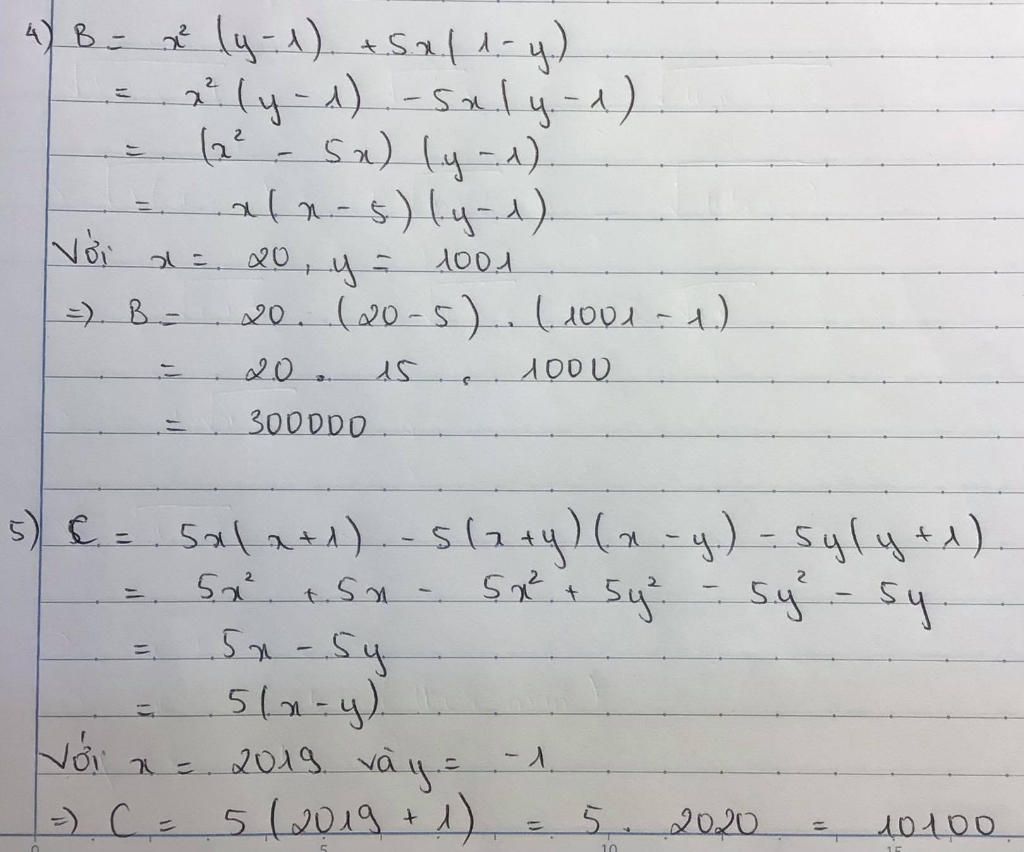 4) B = x² (y - 1) + 5x (1 - y)
= x² (y - 1) - 5x (y - 1)
= (x² - 5x) (y - 1)
= x (x - 5) (y - 1)
Với x = 20, y = 1001
=> B = 20 . (20 - 5) . (1001 - 1)
= 20 . 15 . 1000
= 300000
5) C = 5x (x + 1) - 5 (x + y) (x - y) - 5y (y + 1)
= 5x² + 5x - 5x² + 5y² - 5y² - 5y
= 5x - 5y
= 5 (x - y)
Với x = 2019 và y = -1
=> C = 5 (2019 + 1) = 5 . 2020 = 10100
0 5 10 15